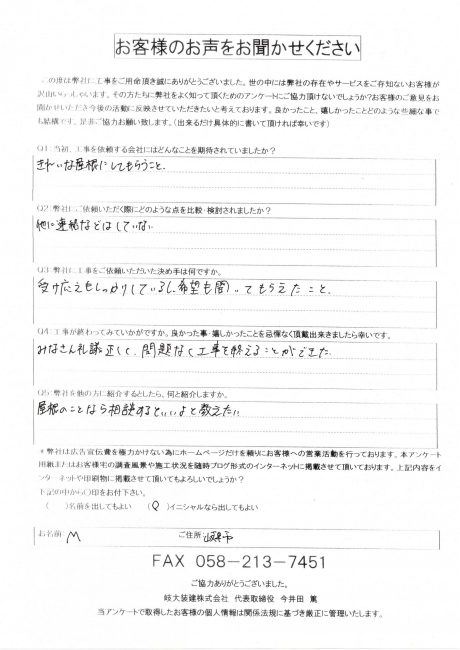 お客様のお声をお聞かせください
この度は弊社に工事をご用命頂き誠にありがとうございました。世の中には弊社の存在やサービスをご存知ないお客様が
沢山いらっしゃいます。その方たちに弊社をよく知って頂くためのアンケートにご協力頂けないでしょうか?お客様のご意見をお
聞かせいただき今後の活動に反映させていただきたいと考えております。良かったこと、嬉しかったことどのような些細な事で
も結構です、是非ご協力お願い致します。(出来るだけ具体的に書いて頂ければ幸いです)
Q1:当初、工事を依頼する会社にはどんなことを期待されていましたか?
きれいな屋根にしてもらうこと。
Q2:弊社にご依頼いただく際にどのような点を比較・検討されましたか?
他に連絡などはしていない
Q3:弊社に工事をご依頼いただいた決め手は何ですか。
受け応えもしっかりしているし、希望も聞いてもらえたこと。
Q4:工事が終わってみていかがですか。良かった事・嬉しかったことを忌憚なく頂戴出来きましたら幸いです。
みなさん礼議正しくて、問題なく工事を終えることができた。
Q5:弊社を他の方に紹介するとしたら、何と紹介しますか。
屋根のことなら相談するといいよと教えたい
*弊社は広告宣伝費を極力かけない為にホームページだけを頼りにお客様への営業活動を行っております。本アンケート
用紙またはお客様宅の調査風景や施工状況を随時ブログ形式のインターネットに掲載させて頂いております。上記内容をイ
ンターネットや印刷物に掲載させて頂いてもよろしいでしょうか?
下記の中から○印をお付下さい。
( )名前を出してもよい (○)イニシャルなら出してもよい
お名前 M ご住所
FAX 058-213-7451
ご協力ありがとうございました。
岐大装建株式会社 代表取締役 今井田 篤
当アンケートで取得したお客様の個人情報は関係法規に基づき厳正に管理いたします。